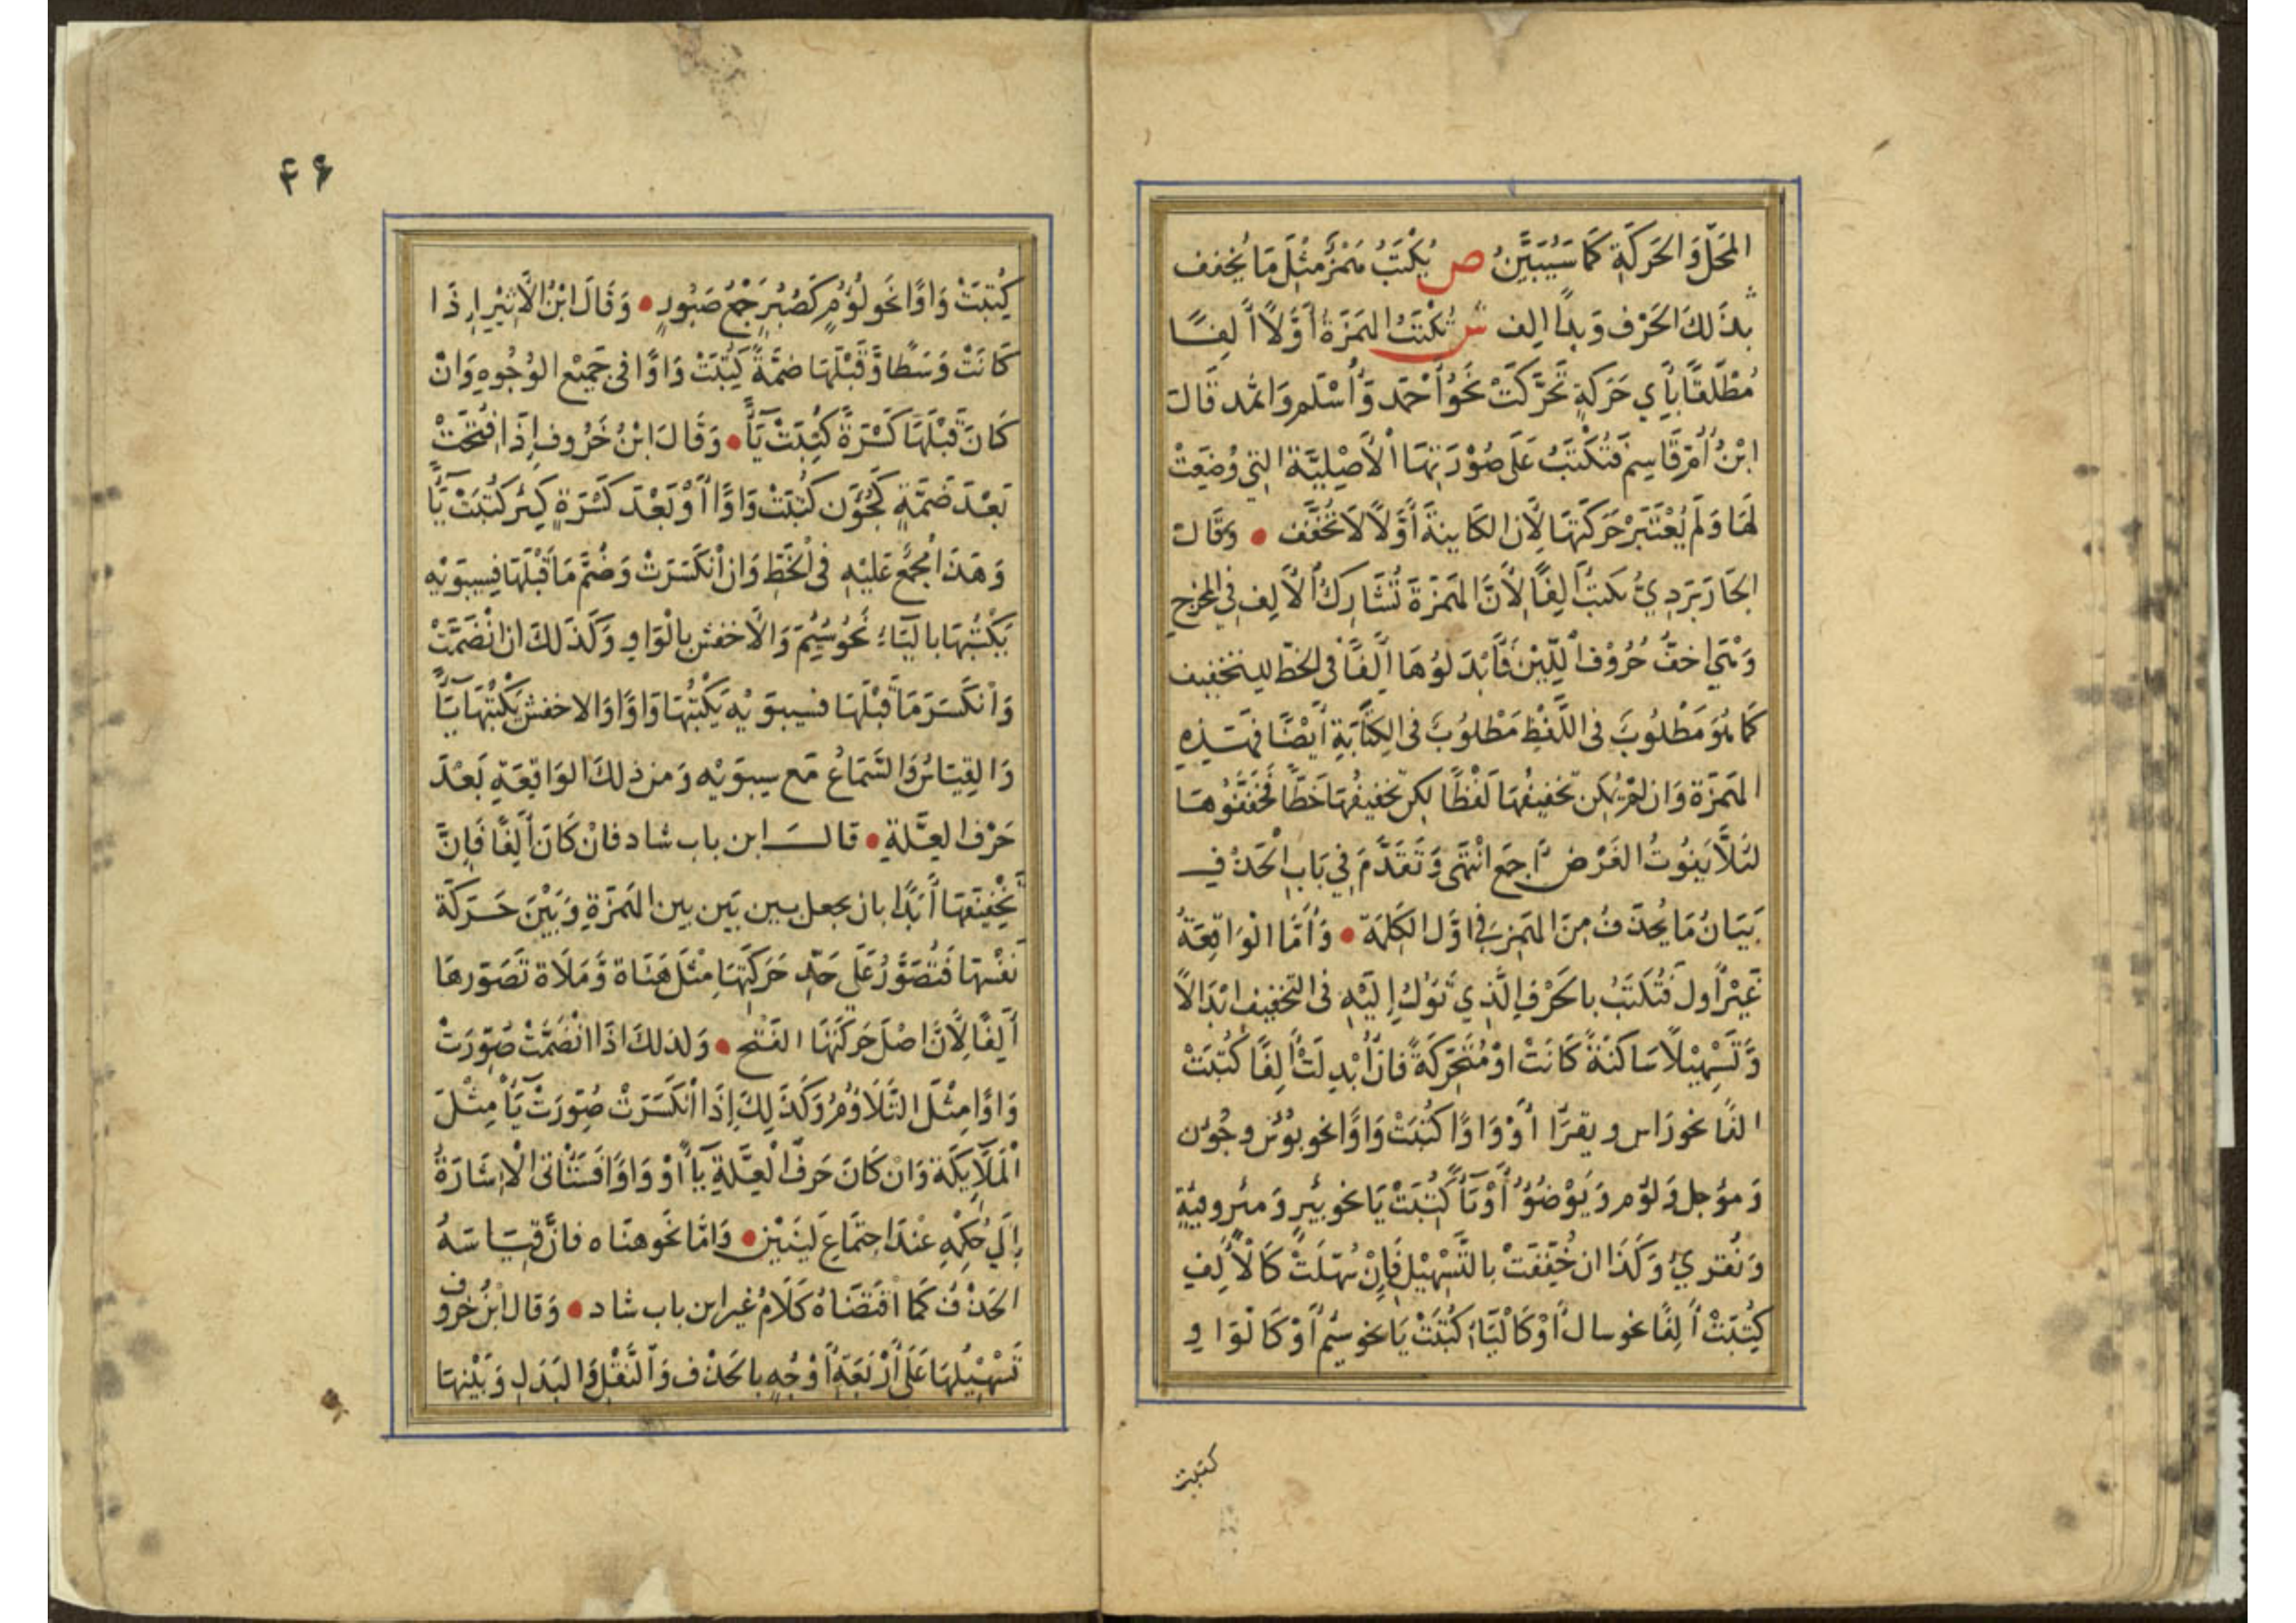 المَحَلَّ وَالحَرَكَةِ كَمَا سَيُبَيَّنُ ص يُكْتَبُ هَمْزٌ مِثْلَ مَا يُخَفف
بِذَلِكَ الحَرْف وَبَدًا الف ش تُكْتَبُ الهَمَزَةُ أَوَّلاً أَلِفًا
مُطْلَقًا بِأَيِ حَرَكَةٍ تَحَرَّكَتْ نَحْوُ أَحْمَد وَأُسْلم وَاثمد قَالَ
ابْنُ أُمِّ قَاسِمٍ فَتُكْتَبُ عَلَى صُوْرَتِهَا الأَصْلِيَّة التي وُضِعَتْ
لَهَا وَلَم يُعْتَبَرْ حَرَكَتَهَا لِأَنَّ الكَايِنةَ أَوَّلاً لاَ تُخَفَّف • وَقَالَ
الجَارَبَرَدِيُّ كتبت أَلِفًا لِأَنَّ الهَمْزَةَ تُشَارِكُ الأَلِف فِي المَخرَجِ
وَهيَ اخَفُّ حُرُوْف اللِّيْن فَأَبْدَلُوْهَا أَلِفًا فى الخطّ للتخفيف
كَما هُوَ مَطْلُوبَ فى اللَّفْظِ مَطْلُوبٌ فى الكِتَابَةِ أَيْضًا فَهَذِهِ
الهَمزَة وَان لَمْ يُمكِن تَخْفِيفُهَا لَفْظًا لكِن تَخفيفُهَا خَطًّا فَخَفَّفُوهَا
لئَلاَّ يَفُوتُ الغَرْض أجمَع انْتَهَى وَتَقَدَّمَ فِي بَابِ الْحَذْفِ
بَيَانُ مَا يُحذَفُ مِنَ الهَمزِ فِي اوَّل الكَلِمَةِ • وَأَمَّا الوَاقِعَةُ
غَيْرُ أول فَتُكتَبُ بالحَرْفِ الَّذِي تَؤُلُ إِلَيْهِ فى التخفيف ابْدَالاً
وَّتَسْهِيْلاً سَاكنَةً كَانَتْ اوْ مُتَحَرِّكَةً فانْ أُبْدِلَتْ أَلِفًا كُتِبَتْ
الفًا نحو رَاس ويقرَأ أَوْ وَاوًا كُتِبَتْ وَاوًا نحو بوُس وجوُن
وَموُجل وَلؤم وَيَوْضُؤُ أَوْ يَاً كُتِبَتْ يَا نحو بيرٍ وَمئر وفيَةٍ
وَنُقرِيُ وَكَذَا ان خُفِّفَتْ بِالتَّسْهِيْلِ فَإِنْ سُهّلَتْ كَالأَلِفِ
كُتِبَتْ أَلِفًا نحو سال أَوْ كَالْيَاءِ كُتِبَتْ يَا نحو سيُم أَوْ كَالْوَاوِ
كتبت
۴۶
كُتِبَتْ وَاوًا نَحو لَوُم كَصُبُرٍ جَمْعُ صَبُورٍ • وَقَالَ ابْنُ الأَثِيْرِ إِذَا
كَانَتْ وَسَطًا وَّقَبْلَهَا ضَمَّةً كُتِبَتْ وَاوًا فى جَمِيْع الوُجُوهِ وَانْ
كَانَ قَبْلَهَا كَسْرَةً كُتِبَتْ يَاً • وَقَالَ ابْنُ خَرُوف إِذَا افْتُتِحَتْ
بَعْدَ ضَمَّةٍ كَجُؤَن كُتِبَتْ وَاوًا أَوْ بَعْدَ كَسْرَةٍ كَمِئَر كُتِبَتْ يَاً
وَهَذَا مُجْمَعٌ عَلَيْهِ فى الخَطِّ وَان انْكَسَرَتْ وَضُمَّ مَا قَبْلَهَا فسِيبَوَيْه
يَكْتُبُهَا بالْيَاء نَحْوُ سُيِمَ وَالأَخفش بالْوَاو وَكَذَلكَ ان انْضَمَّتْ
وَانْكَسَرَ مَا قَبْلَهَا فسيبوَيْه يَكْتُبُهَا وَاوًا وَالاخفش يَكْتُبُهَا يَاً
وَالقِيَاسُ وَالسَّمَاعُ مَع سيبوَيْه وَمن ذلكَ الوَاقِعَةِ بَعْدَ
حَرْف العِلَّةِ • قال ابن باب شاد فانْ كَانَ أَلِفًا فَإِنَّ
تَخْفِيفَهَا أَبَدًا بان يجعل بين بَين بين الهَمزَةِ وَبَيْنَ حَرَكَة
نَفْسهَا فَتُصَوَّرُ عَلَى حَدِّ حَرَكَتِهَا مِثْلَ هَنَاة وَّمَلاَة تَصَوّرهَا
أَلِفًا لِأَنَّ اصْلَ حَرَكَتهَا الفَتْح • وَلذلكَ اذَا انْضَمَّتْ صُوّرَتْ
وَاوًا مِثْلَ التَّلاَوُم وَكَذَلِكَ إِذَا انْكَسَرَتْ صُوِّرَتْ يَاً مِثْلَ
الْمَلَايِكَة وَانْ كَانَ حَرفَ الْعِلَّةِ يَاً أَوْ وَاوًا فَسَتَأتى الْإِشَارَةُ
إِلَي حُكْمِهِ عِنْدَ اجتِمَاعِ لَيِنَيْن • وَامَّا نَحو هنَاه فانَّ قِيَاسَهُ
الحَذْفُ كَمَا اقتَضَاهُ كَلَامُ غير ابن باب شاد • وَقال ابْنُ خَروف
تَسْهِيْلهَا عَلَى أَرْبَعَةِ أَوْجُهٍ بالحَذْف وَالنَّقْل وَالبَدَلِ وَبَيْنهَا